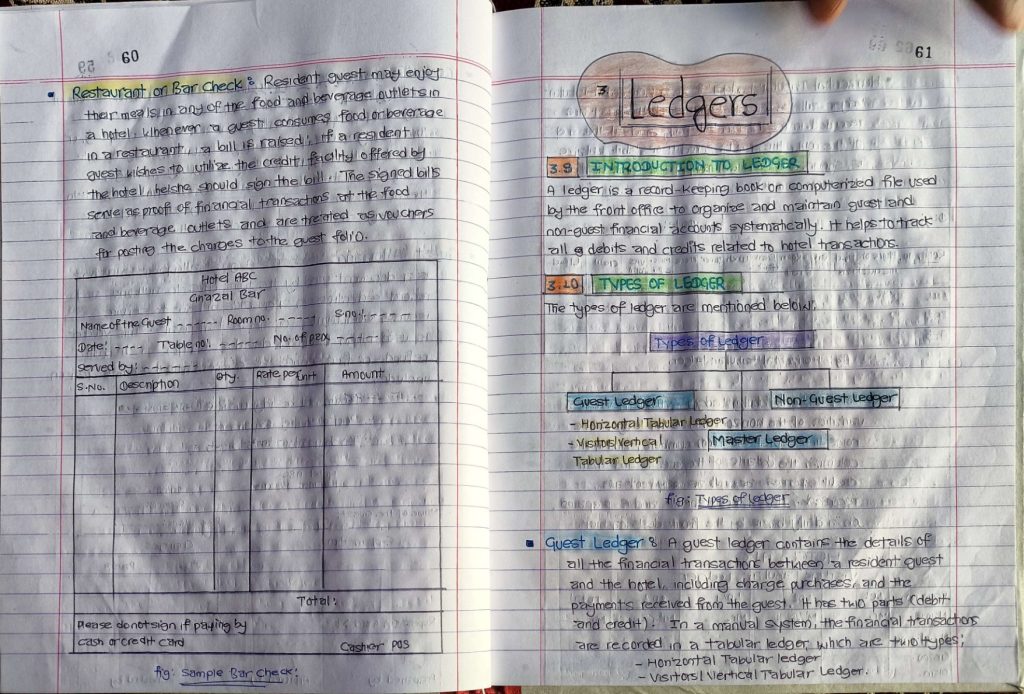 60
Restaurant or Bar Check : Resident guest may enjoy
their meals in any of the food and beverage outlets in
a hotel. Whenever a guest consumes food or beverage
in a restaurant, a bill is raised; if a resident
guest wishes to utilize the credit facility offered by
the hotel, he/she should sign the bill. The signed bills
serve as proof of financial transactions at the food
and beverage outlets and are treated as vouchers
for posting the charges to the guest folio.
Hotel ABC
Ghazal Bar
Name of the Guest ------ Room no. ----- S.no.: ----
Date: ---- Table no: ----- No. of pers -----
Served by: ------
S.No. Description Qty. Rate per Unit Amount
Total:
Please do not sign if paying by
cash or credit card
Cashier POS
fig: Sample Bar Check:
61
3. Ledgers
3.9 INTRODUCTION TO LEDGER
A ledger is a record-keeping book or computerized file used
by the front office to organize and maintain guest and
non-guest financial accounts systematically. It helps to track
all debits and credits related to hotel transactions.
3.10 TYPES OF LEDGER
The types of ledger are mentioned below:
Types of Ledger
Guest Ledger
Non-Guest Ledger
- Horizontal Tabular Ledger
- Visitors/Vertical
Tabular Ledger
Master Ledger
fig: Types of ledger
Guest Ledger : A guest ledger contains the details of
all the financial transactions between a resident guest
and the hotel, including charge purchases, and the
payments received from the guest. It has two parts (debit
and credit). In a manual system, the financial transactions
are recorded in a tabular ledger, which are two types;
- Horizontal Tabular ledger
- Visitors/Vertical Tabular Ledger.